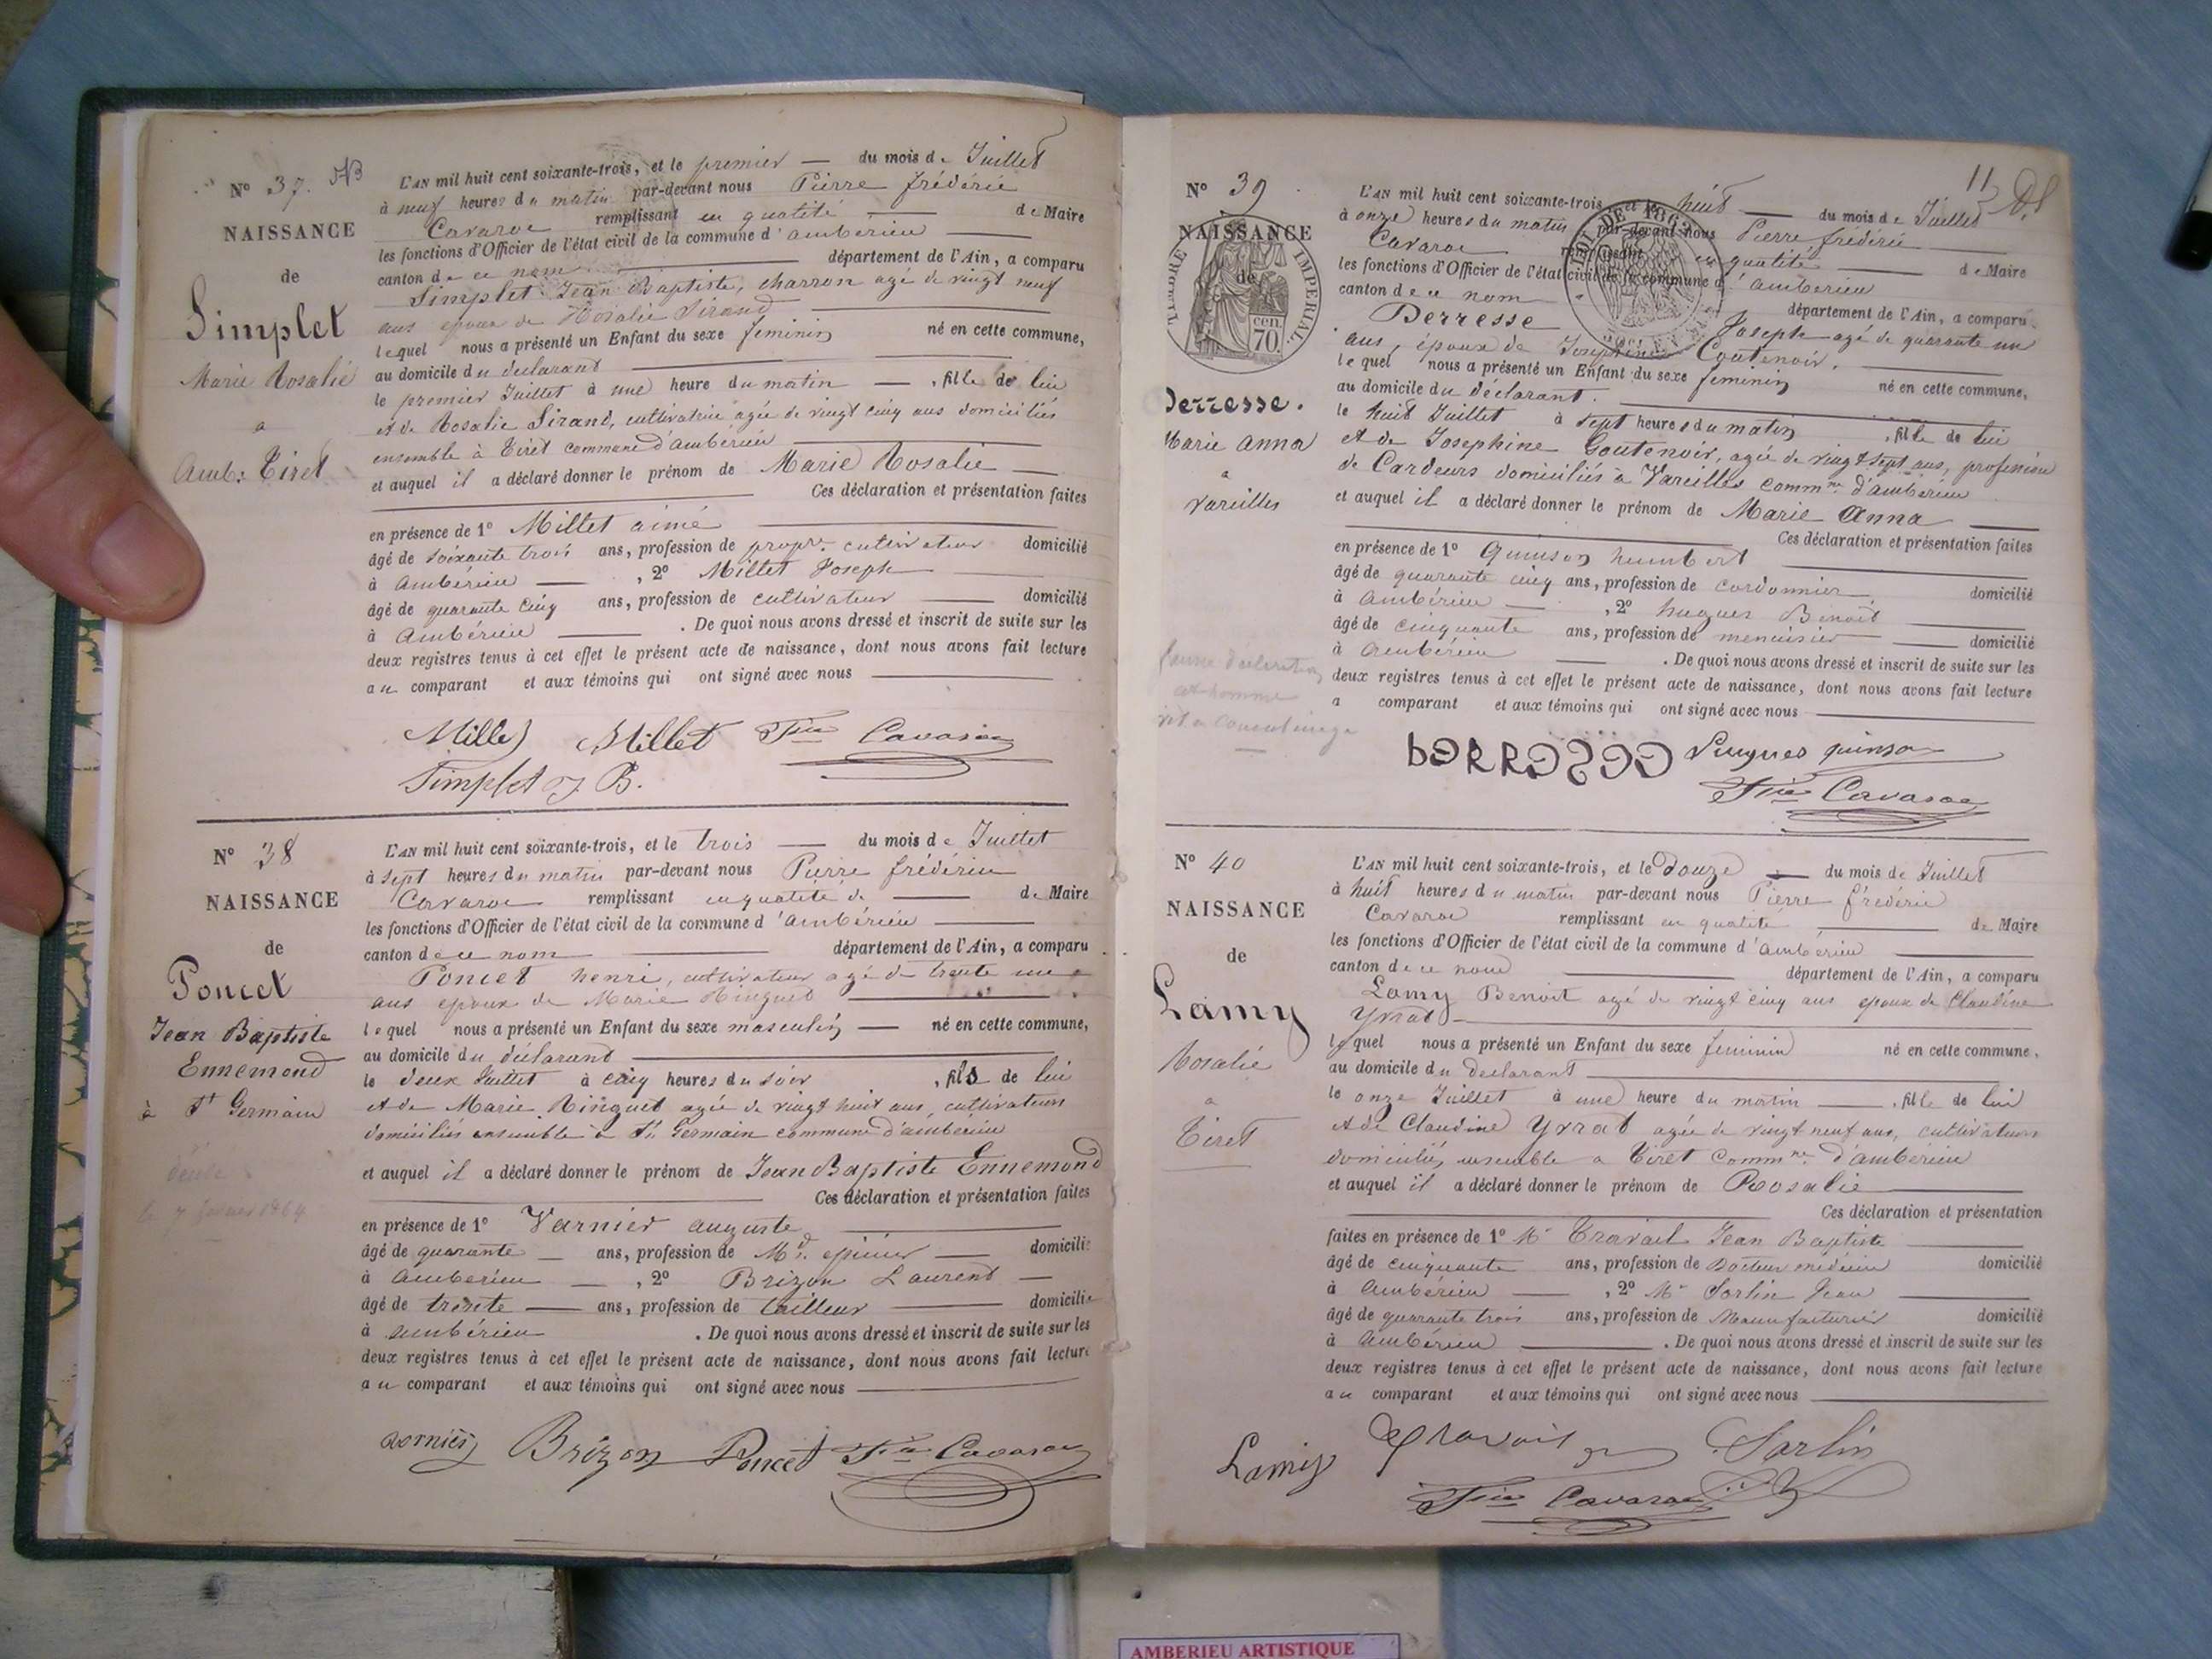 N° 37.
NAISSANCE
de
Simplet
Marie Rosalie
a
Amb: Tiret
L'AN mil huit cent soixante-trois, et le premier — du mois de Juillet
à neuf heures du matin par-devant nous Pierre frédéric
Cavaroc remplissant en qualité — de Maire
les fonctions d'Officier de l'état civil de la commune d'ambérieu —
canton de ce nom — département de l'Ain, a comparu
Simplet Jean Baptiste, charron agé de vingt neuf
ans epoux de Rosalie Sirand —
lequel nous a présenté un Enfant du sexe feminin né en cette commune,
au domicile du declarant —
le premier Juillet à une heure du matin — , fille de lui
et de Rosalie Sirand, cultivatrice agée de vingt cinq ans domiciliés
ensemble à Tiret commune d'ambérieu —
et auquel il a déclaré donner le prénom de Marie Rosalie —
— Ces déclaration et présentation faites
en présence de 1° Millet aimé —
âgé de soixante trois ans, profession de propre cultivateur domicilié
à Ambérieu — , 2° Millet Joseph —
âgé de quarante cinq ans, profession de cultivateur — domicilié
à Ambérieu — . De quoi nous avons dressé et inscrit de suite sur les
deux registres tenus à cet effet le présent acte de naissance, dont nous avons fait lecture
au comparant et aux témoins qui ont signé avec nous —
Millet Millet Fic Cavaroc
Simplet J B.
N° 38
NAISSANCE
de
Poncet
Jean Baptiste
Ennemond
à St Germain
L'AN mil huit cent soixante-trois, et le trois — du mois de Juillet
à sept heures du matin par-devant nous Pierre frédéric
Cavaroc remplissant en qualité de — de Maire
les fonctions d'Officier de l'état civil de la commune d'ambérieu —
canton de ce nom — département de l'Ain, a comparu
Poncet henri, cultivateur agé de trente un
ans epoux de Marie Ringuet —
lequel nous a présenté un Enfant du sexe masculin — né en cette commune,
au domicile du déclarant —
le deux Juillet à cinq heures du soir , fils de lui
et de Marie Ringuet agée de vingt huit ans, cultivateurs
domiciliés ensemble à St Germain commune d'ambérieu
et auquel il a déclaré donner le prénom de Jean Baptiste Ennemond
— Ces déclaration et présentation faites
en présence de 1° Varnier auguste —
âgé de quarante — ans, profession de Md epicier — domicilié
à Amberieu — , 2° Brizon Laurent —
âgé de trente — ans, profession de tailleur — domicilié
à ambérieu . De quoi nous avons dressé et inscrit de suite sur les
deux registres tenus à cet effet le présent acte de naissance, dont nous avons fait lecture
au comparant et aux témoins qui ont signé avec nous —
Vornier Brizon Poncet Fic Cavaroc
11
N° 39
NAISSANCE
de
TIMBRE IMPERIAL
cen. 70.
DE 1863
Derresse.
Marie anna
a
Vareilles
fausse déclaration
cet homme
vit en concubinage
L'AN mil huit cent soixante-trois, et le huit — du mois de Juillet
à onze heures du matin par-devant nous Pierre frédéric
Cavaroc remplissant en qualité — de Maire
les fonctions d'Officier de l'état civil de la commune d'ambérieu
canton de ce nom département de l'Ain, a comparu
Derresse Joseph agé de quarante un
ans, époux de Josephine Goutenoir, —
lequel nous a présenté un Enfant du sexe feminin né en cette commune,
au domicile du déclarant. —
le huit Juillet à sept heures du matin , fille de lui
et de Josephine Goutenoir, agée de vingt sept ans, profession
de Cardeurs domiciliés à Vareilles comm.ne d'ambérieu
et auquel il a déclaré donner le prénom de Marie Anna —
— Ces déclaration et présentation faites
en présence de 1° Quinson humbert —
âgé de quarante cinq ans, profession de cordonnier, domicilié
à Ambérieu — , 2° hugues Benoit —
âgé de cinquante ans, profession de menuisier — domicilié
à Ambérieu — . De quoi nous avons dressé et inscrit de suite sur les
deux registres tenus à cet effet le présent acte de naissance, dont nous avons fait lecture
a comparant et aux témoins qui ont signé avec nous —
Derresse hugues quinson
Fic Cavaroc
N° 40
NAISSANCE
de
Lamy
Rosalie
a
Tiret
L'AN mil huit cent soixante-trois, et le Douze — du mois de Juillet
à huit heures du matin par-devant nous Pierre frédéric
Cavaroc remplissant en qualité — de Maire
les fonctions d'Officier de l'état civil de la commune d'ambérieu —
canton de ce nom — département de l'Ain, a comparu
Lamy Benoit agé de vingt cinq ans epoux de Claudine
Yvrat —
lequel nous a présenté un Enfant du sexe feminin né en cette commune,
au domicile du declarant —
le onze Juillet à une heure du matin — , fille de lui
et de Claudine Yvrat agée de vingt neuf ans, cultivateurs
domiciliés ensemble a Tiret comm.ne d'ambérieu
et auquel il a déclaré donner le prénom de Rosalie —
— Ces déclaration et présentation
faites en présence de 1° Mr Travail Jean Baptiste —
âgé de cinquante ans, profession de Docteur medecin domicilié
à Ambérieu — , 2° Mr Sarlin Jean —
âgé de quarante trois ans, profession de Manufacturier domicilié
à Ambérieu — . De quoi nous avons dressé et inscrit de suite sur les
deux registres tenus à cet effet le présent acte de naissance, dont nous avons fait lecture
au comparant et aux témoins qui ont signé avec nous —
Lamy Travail Sarlin
Fic Cavaroc
AMBERIEU ARTISTIQUE